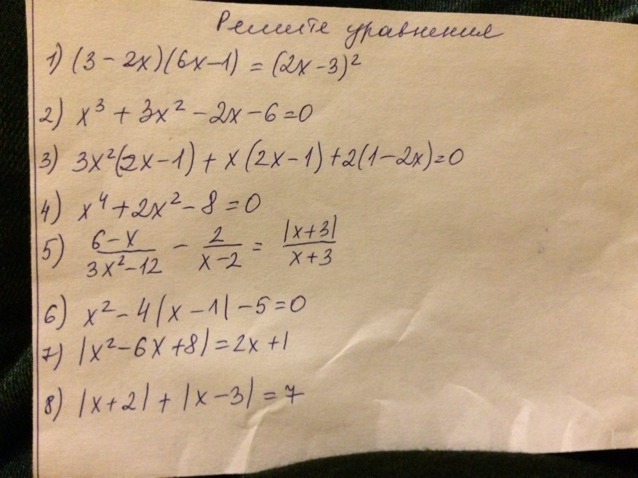 Решите уравнения
1) (3 - 2x)(6x-1) = (2x-3)²
2) x³ + 3x² - 2x - 6 = 0
3) 3x²(2x-1) + x(2x-1) + 2(1-2x) = 0
4) x⁴ + 2x² - 8 = 0
5) (6-x)/(3x²-12) - 2/(x-2) = |x+3|/(x+3)
6) x² - 4|x-1| - 5 = 0
7) |x² - 6x + 8| = 2x + 1
8) |x+2| + |x-3| = 7